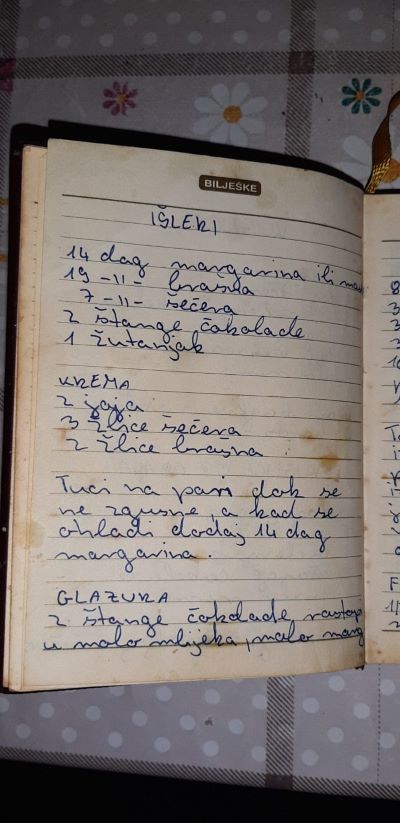 BILJEŠKE
IŠLERI
14 dag margarina ili mas
19 -11- brašna
7 -11- šećera
2 štange čokolade
1 žutanjak
KREMA
2 jaja
3 žlice šećera
2 žlice brašna
Tuci na pari dok se
ne zgusne, a kad se
ohladi dodaj 14 dag
margarina.
GLAZURA
2 štange čokolade rastopi
u malo mlijeka, malo marg